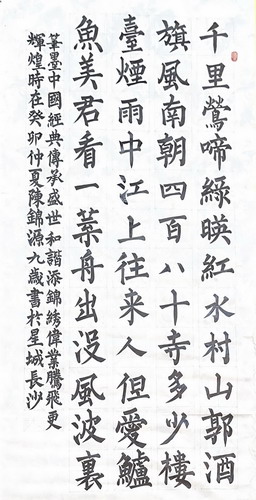 千里鶯啼綠暎紅水村山郭酒
旗風南朝四百八十寺多少樓
臺煙雨中江上往来人但愛鱸
魚美君看一葉舟出没風波裏
筆墨中國經典傳承盛世和諧添錦綉偉業騰飛更
輝煌時在癸卯仲夏陳錦源九歲書於星城長沙